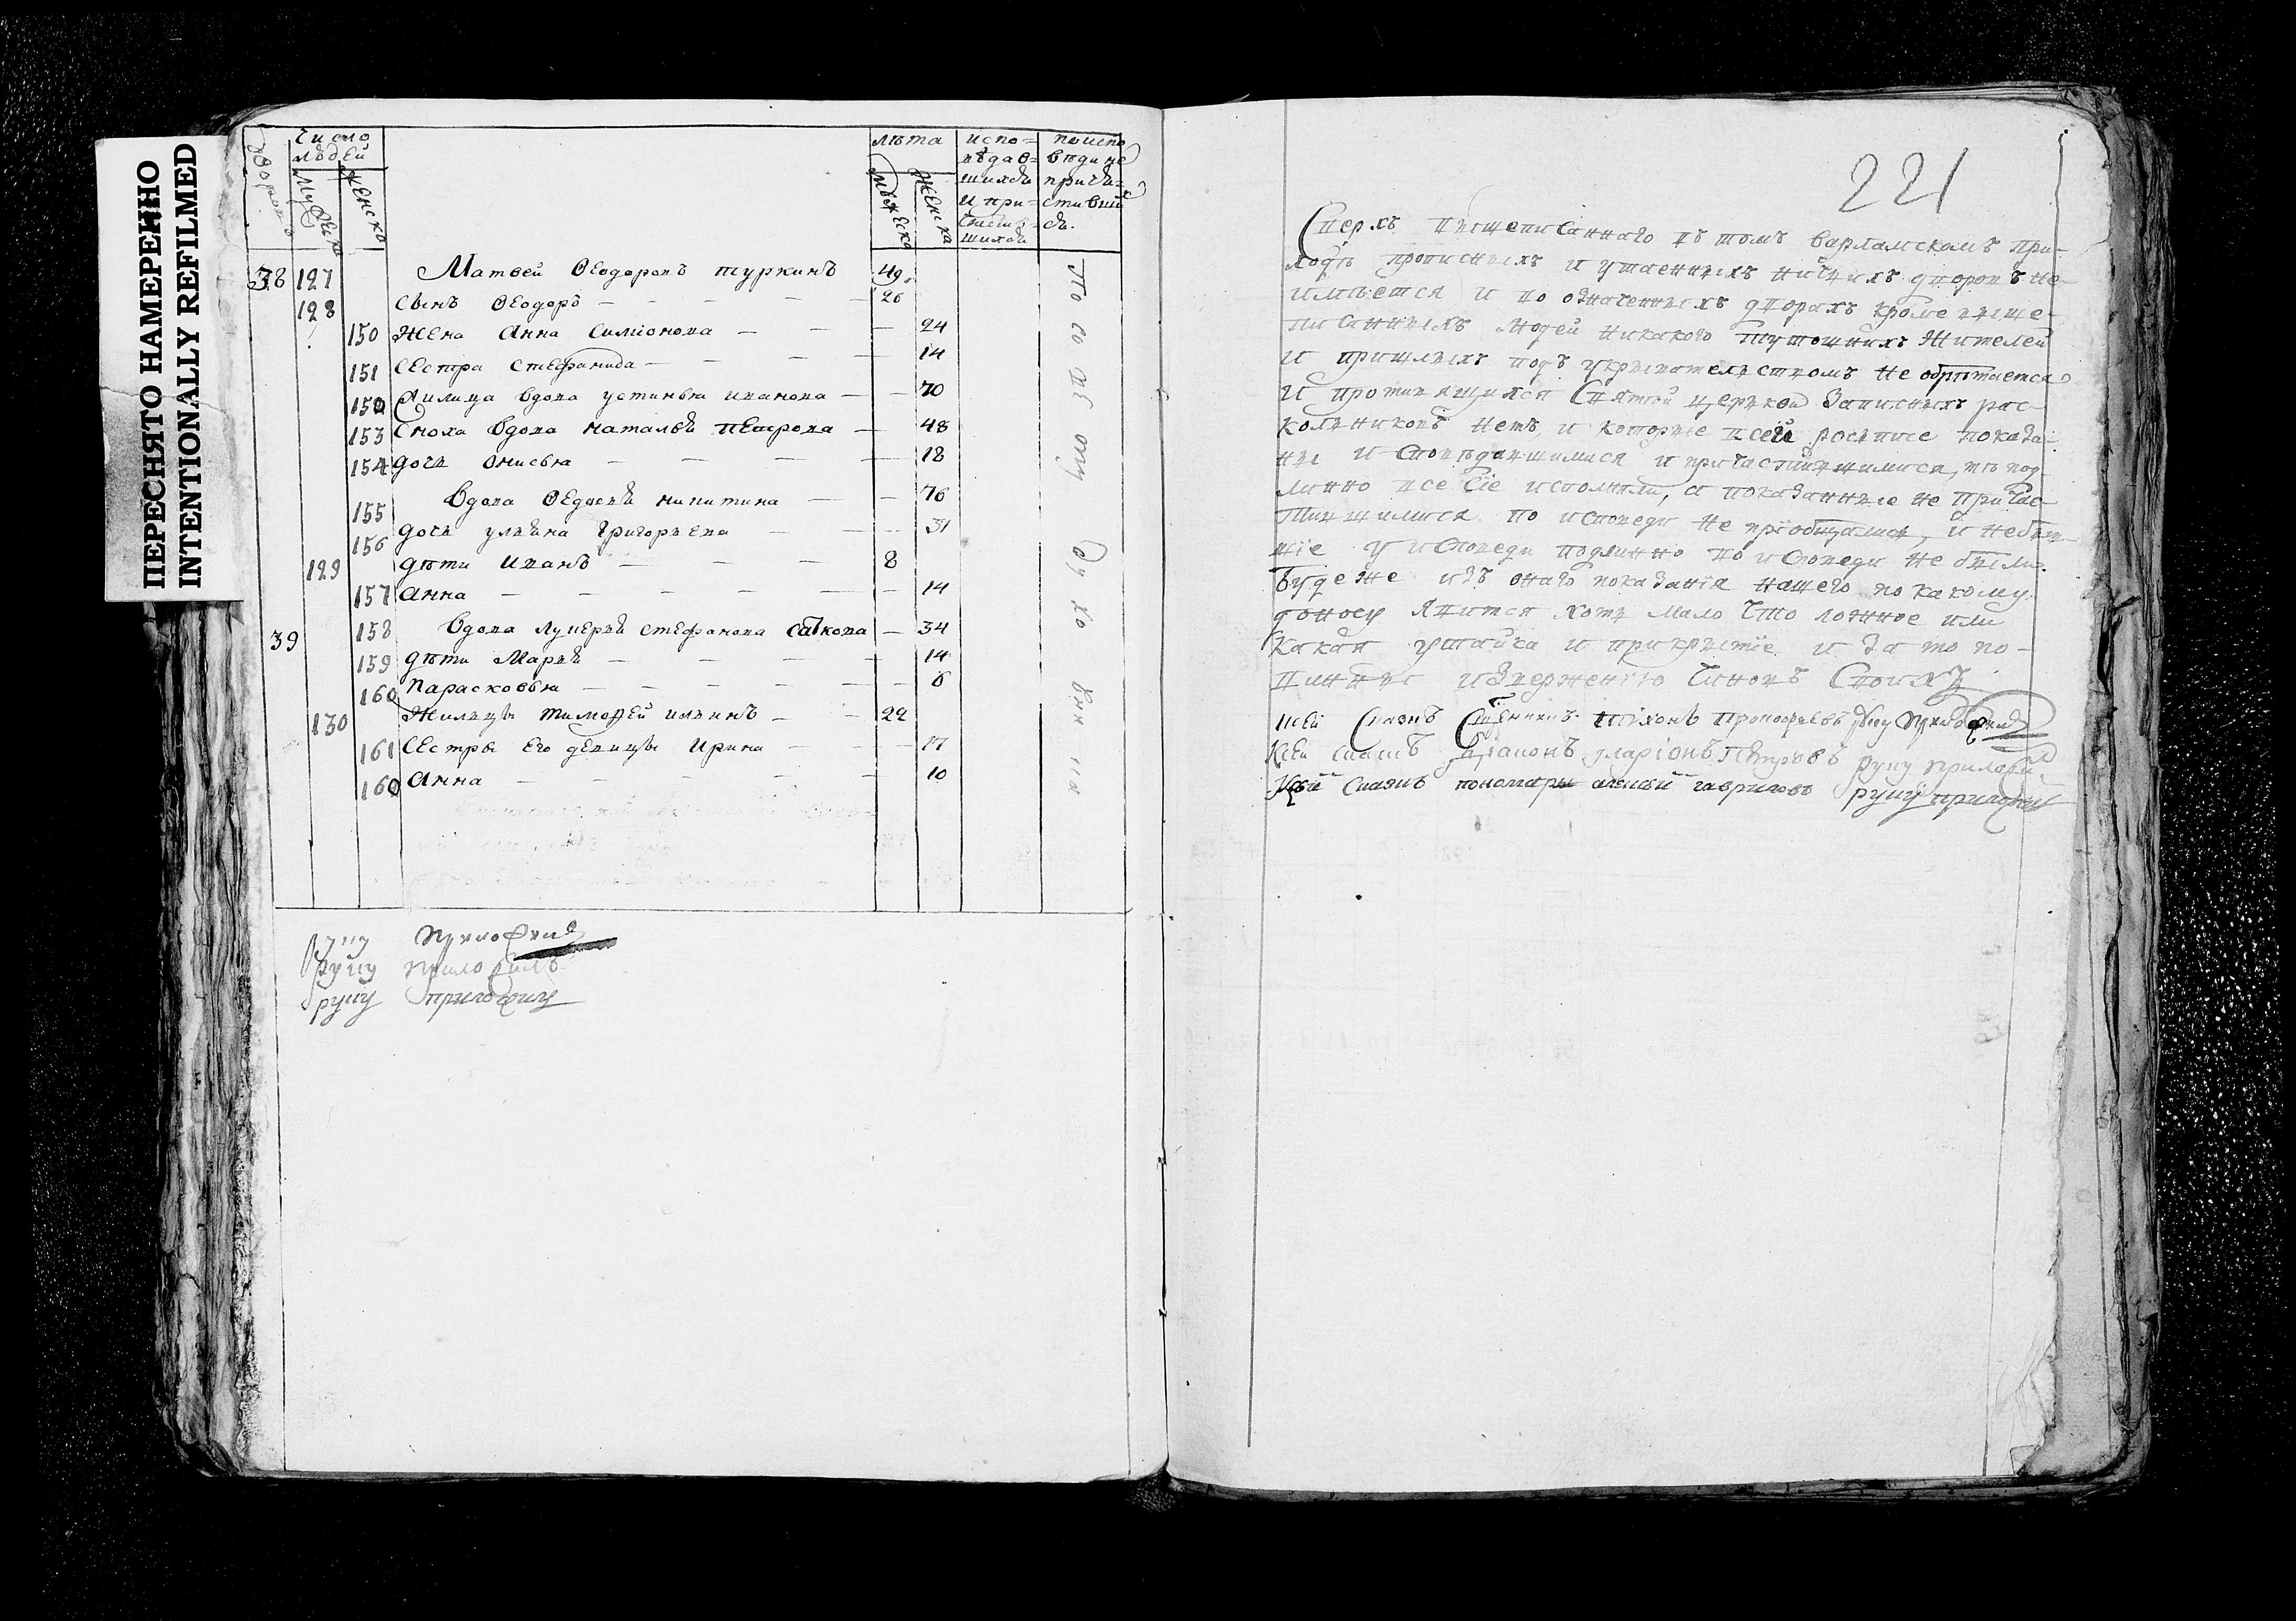 ПЕРЕСНЯТО НАМЕРЕННО
INTENTIONALLY REFILMED
Число
людей
дворовъ
мужеска
женска
лѣта
мужеска
женска
испо=
вѣдав=
шихся
и при=
частив=
шихся
по испо
вѣди не
прича=
стивший
ся.
38 127 Матвей Ѳеодоровъ туркинъ 49
128 сынъ Ѳеодоръ — 26
150 жена Анна Симіонова — 24
151 сестра Стефанида — 14
152 жилица вдова устинья иванова — 70
153 Сноха вдова наталья петрова — 48
154 дочь Онисья — 18
155 Вдова Ѳедосья никитина — 76
156 дочь ульяна григорьева — 31
129 дѣти Иванъ — 8
157 Анна — 14
39 158 Вдова лукерья стефанова савкова — 34
159 дѣти Марья — 14
160 Парасковья — 6
130 Жильцы тимоѳей ильинъ — 22
161 Сестры его девицы Ирина — 17
162 Анна — 10
руку приложилъ
руку приложилъ
руку приложилъ
221
Сверхъ вышеписаннаго въ томъ варламскомъ при-
ходѣ прописныхъ и утаенныхъ ничьихъ дворовъ не-
имѣется и по означеннымъ дворахъ кроме выше-
писанныхъ людей никакого тутошнихъ жителей
и пришлыхъ подъ укрывателствомъ не обрѣтается
и противящихся Святой церквой записныхъ рас-
колниковъ нетъ, и которые всей росписе показа-
ны исповѣдавшимися и причастившимися, тѣ под-
линно все сіе исполняли, а показанные не причас-
тившимися по исповеди не пріобщались, и небыв-
шіе у исповеди подлинно по исповеди не были.
Буде же изъ онаго показанія нашего по какому
доносу явится хотя мало что ложное или
какая утайка и прикрытіе и за то по-
винны изверженію чиновъ своихъ
Ксей сказкѣ священникъ тихонъ Прокофьевъ руку приложилъ
Ксей сказкѣ діаконъ иларіонъ Петровъ руку приложилъ
Ксей сказкѣ пономарь алексѣй гавриловъ руку приложилъ